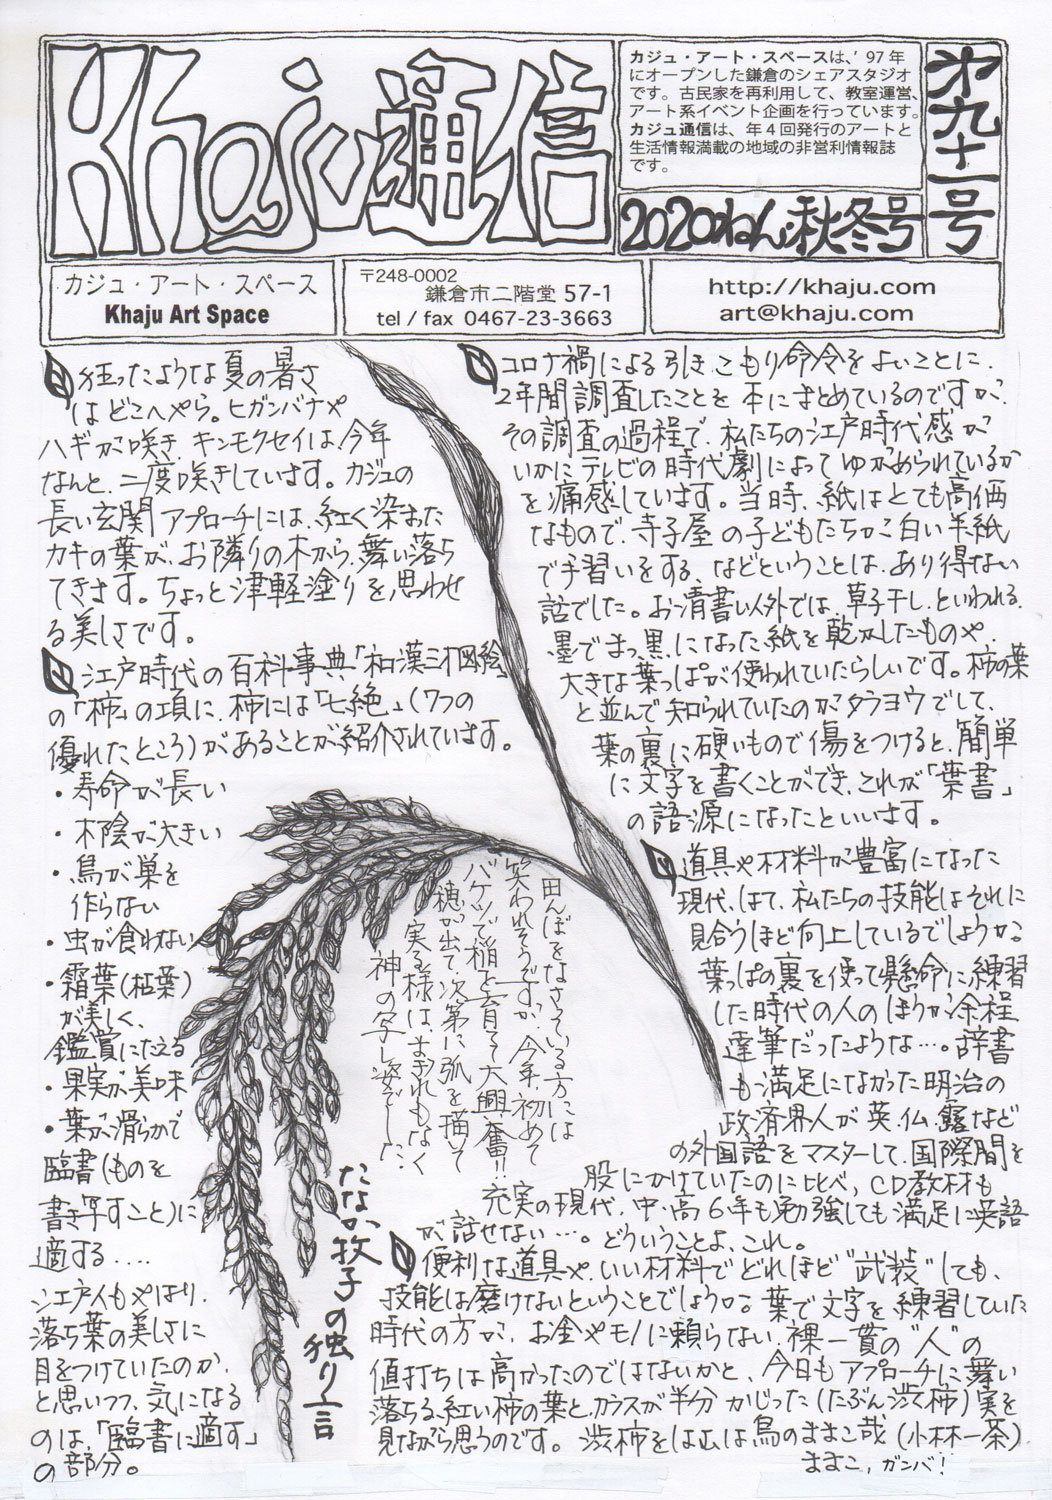 Khaju通信
カジュ・アート・スペースは、'97年
にオープンした鎌倉のシェアスタジオ
です。古民家を再利用して、教室運営、
アート系イベント企画を行っています。
カジュ通信は、年4回発行のアートと
生活情報満載の地域の非営利情報誌
です。
第九十一号
2020ねん秋冬号
カジュ・アート・スペース
Khaju Art Space
〒248-0002
鎌倉市二階堂 57-1
tel / fax 0467-23-3663
http://khaju.com
art@khaju.com
狂ったような夏の暑さ
はどこへやら。ヒガンバナや
ハギが咲き、キンモクセイは、今年
なんと、二度咲きしています。カジュの
長い玄関アプローチには、紅く染まった
カキの葉が、お隣りの木から、舞い落ち
てきます。ちょっと津軽塗りを思わせ
る美しさです。
江戸時代の百科事典「和漢三才図絵」
の「柿」の項に、柿には「七絶」(7つの
優れたところ)があることが紹介されています。
・寿命が長い
・木陰が大きい
・鳥が巣を
作らない
・虫が食わない
・霜葉(枯葉)
が美しく、
鑑賞にたえる
・果実が美味
・葉が滑らかで
臨書(ものを
書き写すこと)に
適する‥‥
シェア人もやはり、
落ち葉の美しさに
目をつけていたのか、
と思いつつ、気になる
のは、「臨書に適す」
の部分。
コロナ禍による引きこもり命令をよいことに、
2年間調査したことを本にまとめているのですが、
その調査の過程で、私たちの江戸時代感が
いかにテレビの時代劇によってゆがめられているか
を痛感しています。当時、紙はとても高価
なもので、寺子屋の子どもたちが白い半紙
で手習いをする、などということは、あり得ない
話でした。お清書以外では、草子干し、といわれる、
墨でまっ黒になった紙を乾かしたものや、
大きな葉っぱが使われていたらしいです。柿の葉
と並んで知られていたのがタラヨウでして、
葉の裏に硬いもので傷をつけると、簡単
に文字を書くことができ、これが「葉書」
の語源になったといいます。
道具や材料が豊富になった
現代、はて、私たちの技能はそれに
見合うほど向上しているでしょうか?
葉っぱの裏を使って懸命に練習
した時代の人のほうが余程
達筆だったような…。辞書
も満足になかった明治の
政・済界人が英、仏、露など
の外国語をマスターして、国際間を
股にかけていたのに比べ、CD教材も
充実の現代、中・高6年も勉強しても満足に英語
が話せない…。どういうことよ、これ。
便利な道具や、いい材料でどれほど“武装”しても、
技能は磨けないということでしょうか。葉で文字を練習していた
時代の方が、お金やモノに頼らない、裸一貫の“人”の
値打ちは高かったのではないかと、今日もアプローチに舞い
落ちる、紅い柿の葉と、カラスが半分かじった(たぶん渋柿)実を
見ながら思うのです。渋柿をはむは鳥のままこ哉(小林一茶)
ままこ、ガンバ!
田んぼをなさっている方には
笑われそうですが、今年、初めて
バケツで稲を育てて大興奮!!
穂が出て、次第に弧を描いて
実る様は、まぎれもなく
神の写し姿でした。
たなか牧子の独り言